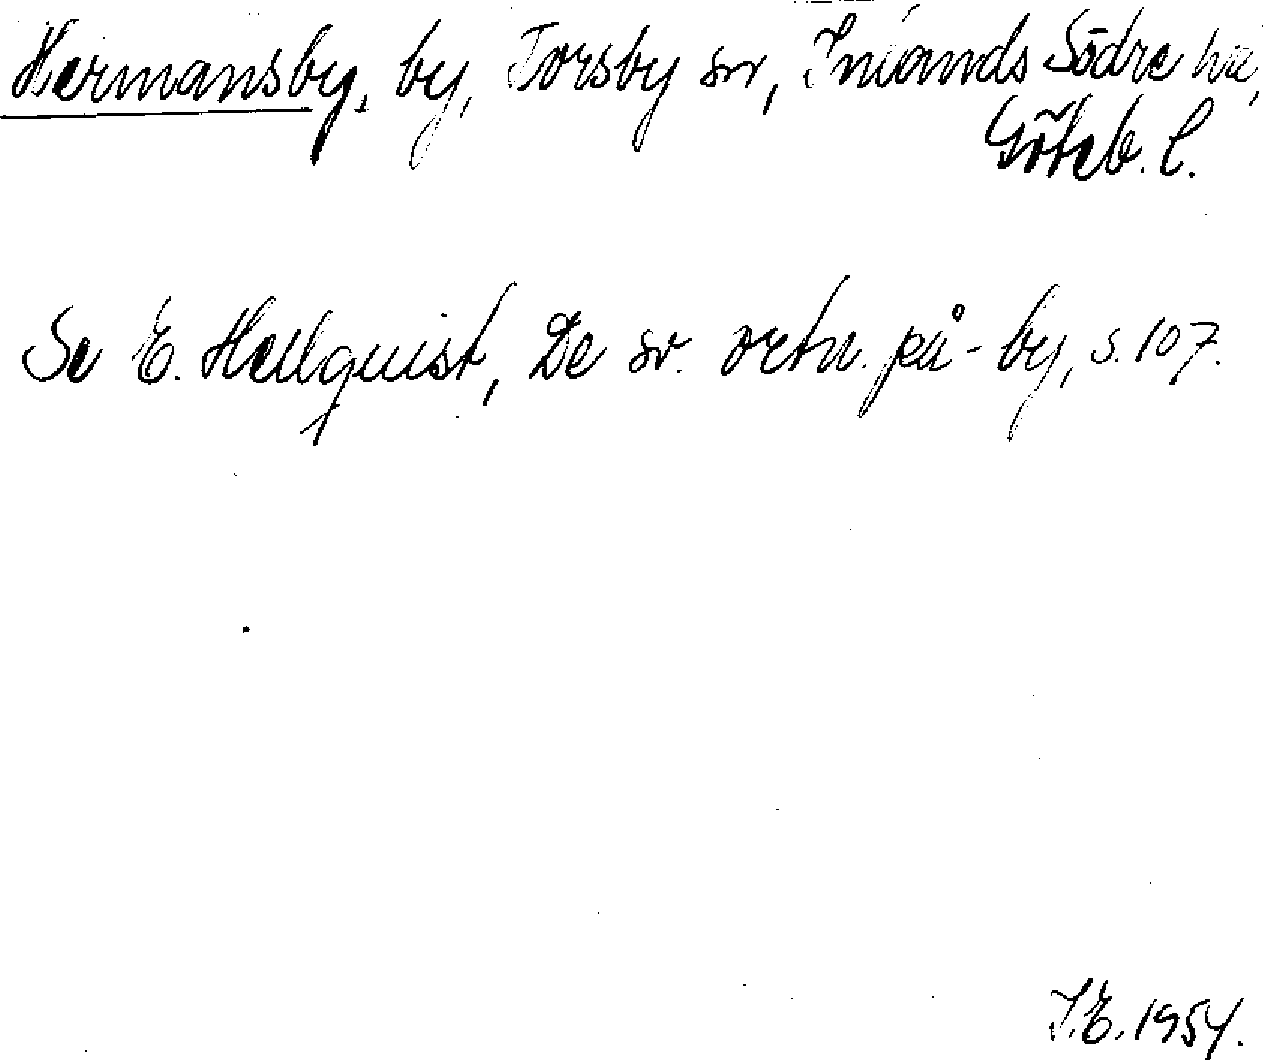 Hermansby, by, Torsby sn, Inlands Södre hd,
Göteb. l.
Se E. Hellquist, De sv. ortn. på -by, s. 107.
I.E. 1954.